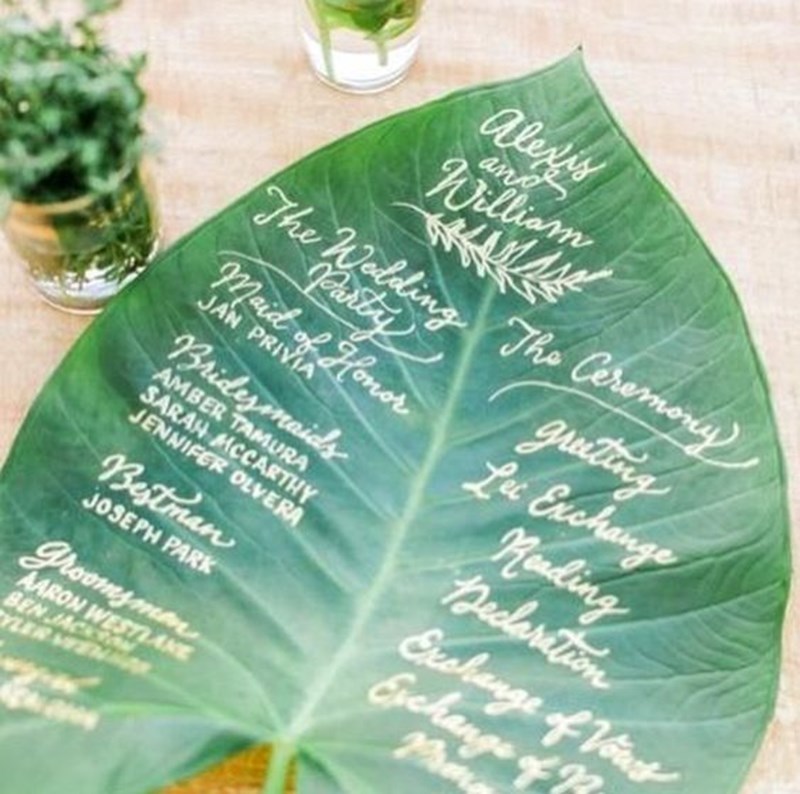 Alexis
and
William
The Wedding
Party
Maid of Honor
JAN PRIVIA
Bridesmaids
AMBER TAMURA
SARAH MCCARTHY
JENNIFER OLVERA
Bestman
JOSEPH PARK
Groomsmen
AARON WESTLAKE
BEN JACKSON
The Ceremony
Greeting
Lei Exchange
Reading
Declaration
Exchange of Vows
Exchange of